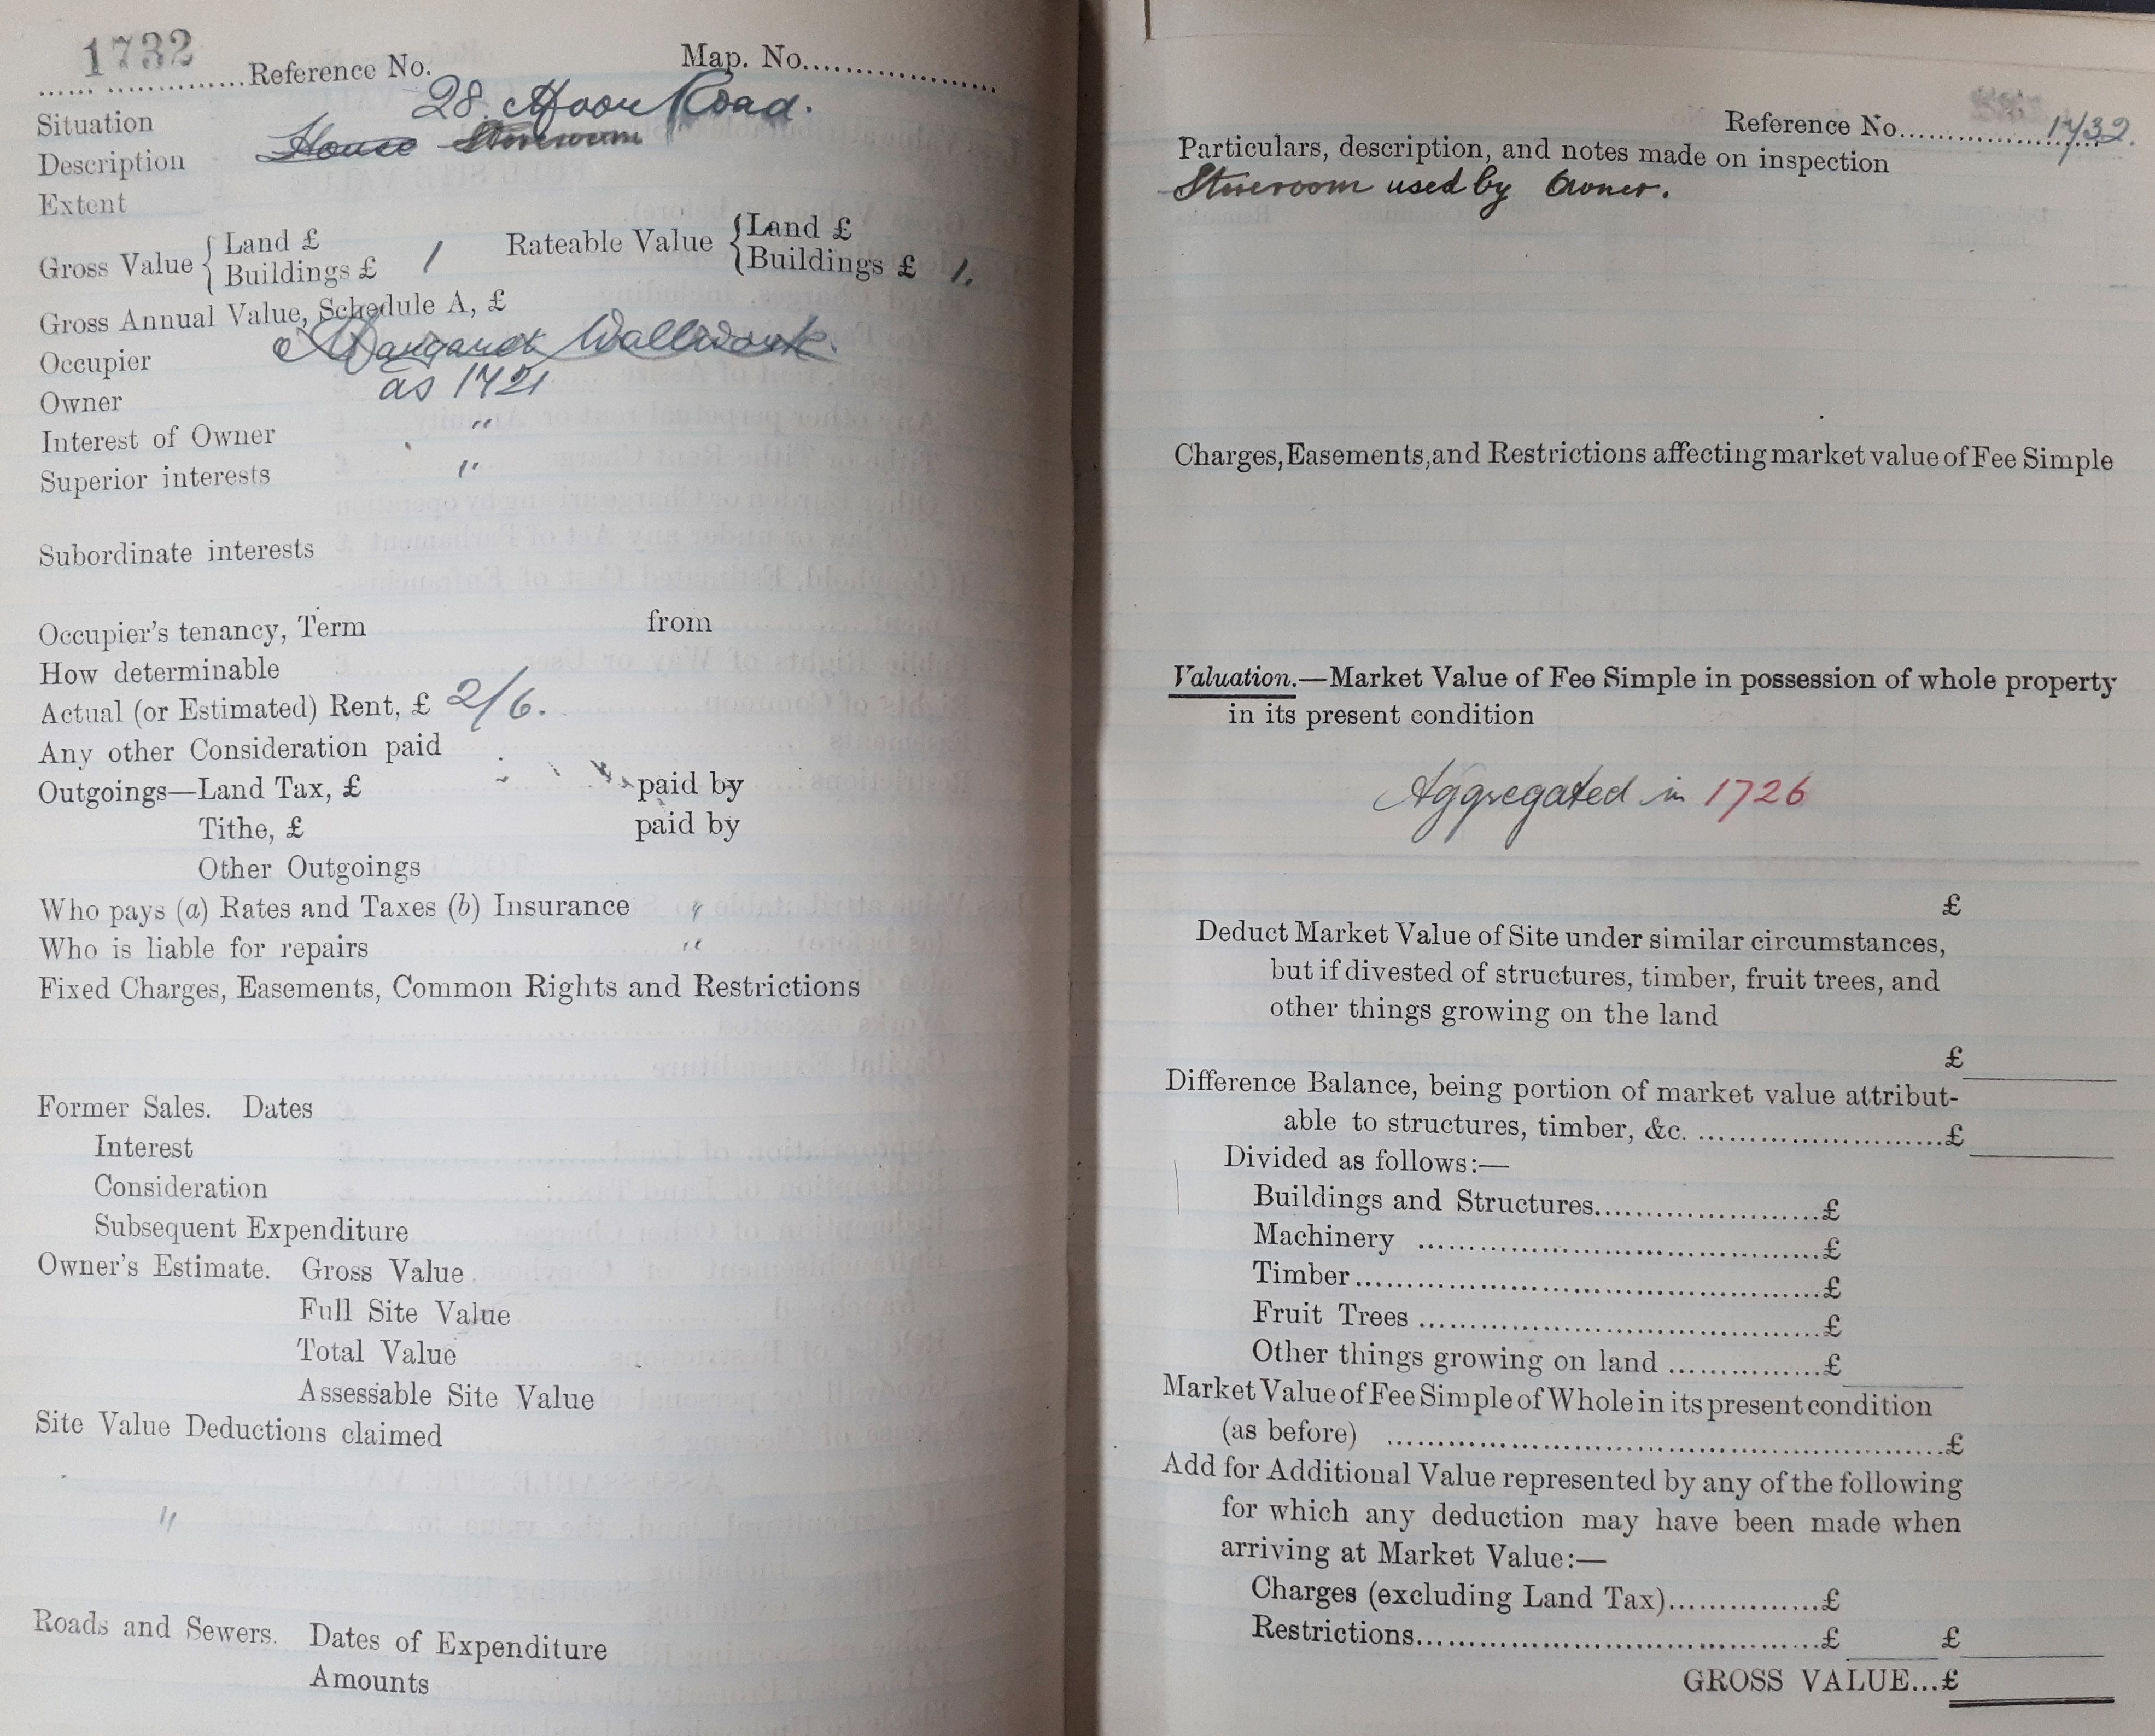 1732
...... ..............Reference No. Map. No....................
Situation 28. Moor Road.
Description House Storeroom
Extent
Gross Value { Land £ Rateable Value { Land £
Buildings £ 1 Buildings £ 1.
Gross Annual Value, Schedule A, £
Occupier Margaret Wallwork.
Owner as 1721
Interest of Owner "
Superior interests "
Subordinate interests
Occupier's tenancy, Term from
How determinable
Actual (or Estimated) Rent, £ 2/6.
Any other Consideration paid
Outgoings—Land Tax, £ paid by
Tithe, £ paid by
Other Outgoings
Who pays (a) Rates and Taxes (b) Insurance "
Who is liable for repairs "
Fixed Charges, Easements, Common Rights and Restrictions
Former Sales. Dates
Interest
Consideration
Subsequent Expenditure
Owner's Estimate. Gross Value
Full Site Value
Total Value
Assessable Site Value
Site Value Deductions claimed
"
Roads and Sewers. Dates of Expenditure
Amounts
Reference No.....................1732.
Particulars, description, and notes made on inspection
Storeroom used by Owner.
Charges, Easements, and Restrictions affecting market value of Fee Simple
Valuation.—Market Value of Fee Simple in possession of whole property
in its present condition
Aggregated in 1726
£
Deduct Market Value of Site under similar circumstances,
but if divested of structures, timber, fruit trees, and
other things growing on the land
£
Difference Balance, being portion of market value attribut-
able to structures, timber, &c. ..........................£
Divided as follows:—
Buildings and Structures........................£
Machinery ...........................................£
Timber.................................................£
Fruit Trees ..........................................£
Other things growing on land ...............£
Market Value of Fee Simple of Whole in its present condition
(as before) ..........................................................£
Add for Additional Value represented by any of the following
for which any deduction may have been made when
arriving at Market Value:—
Charges (excluding Land Tax)...............£
Restrictions..........................................£ £
GROSS VALUE...£